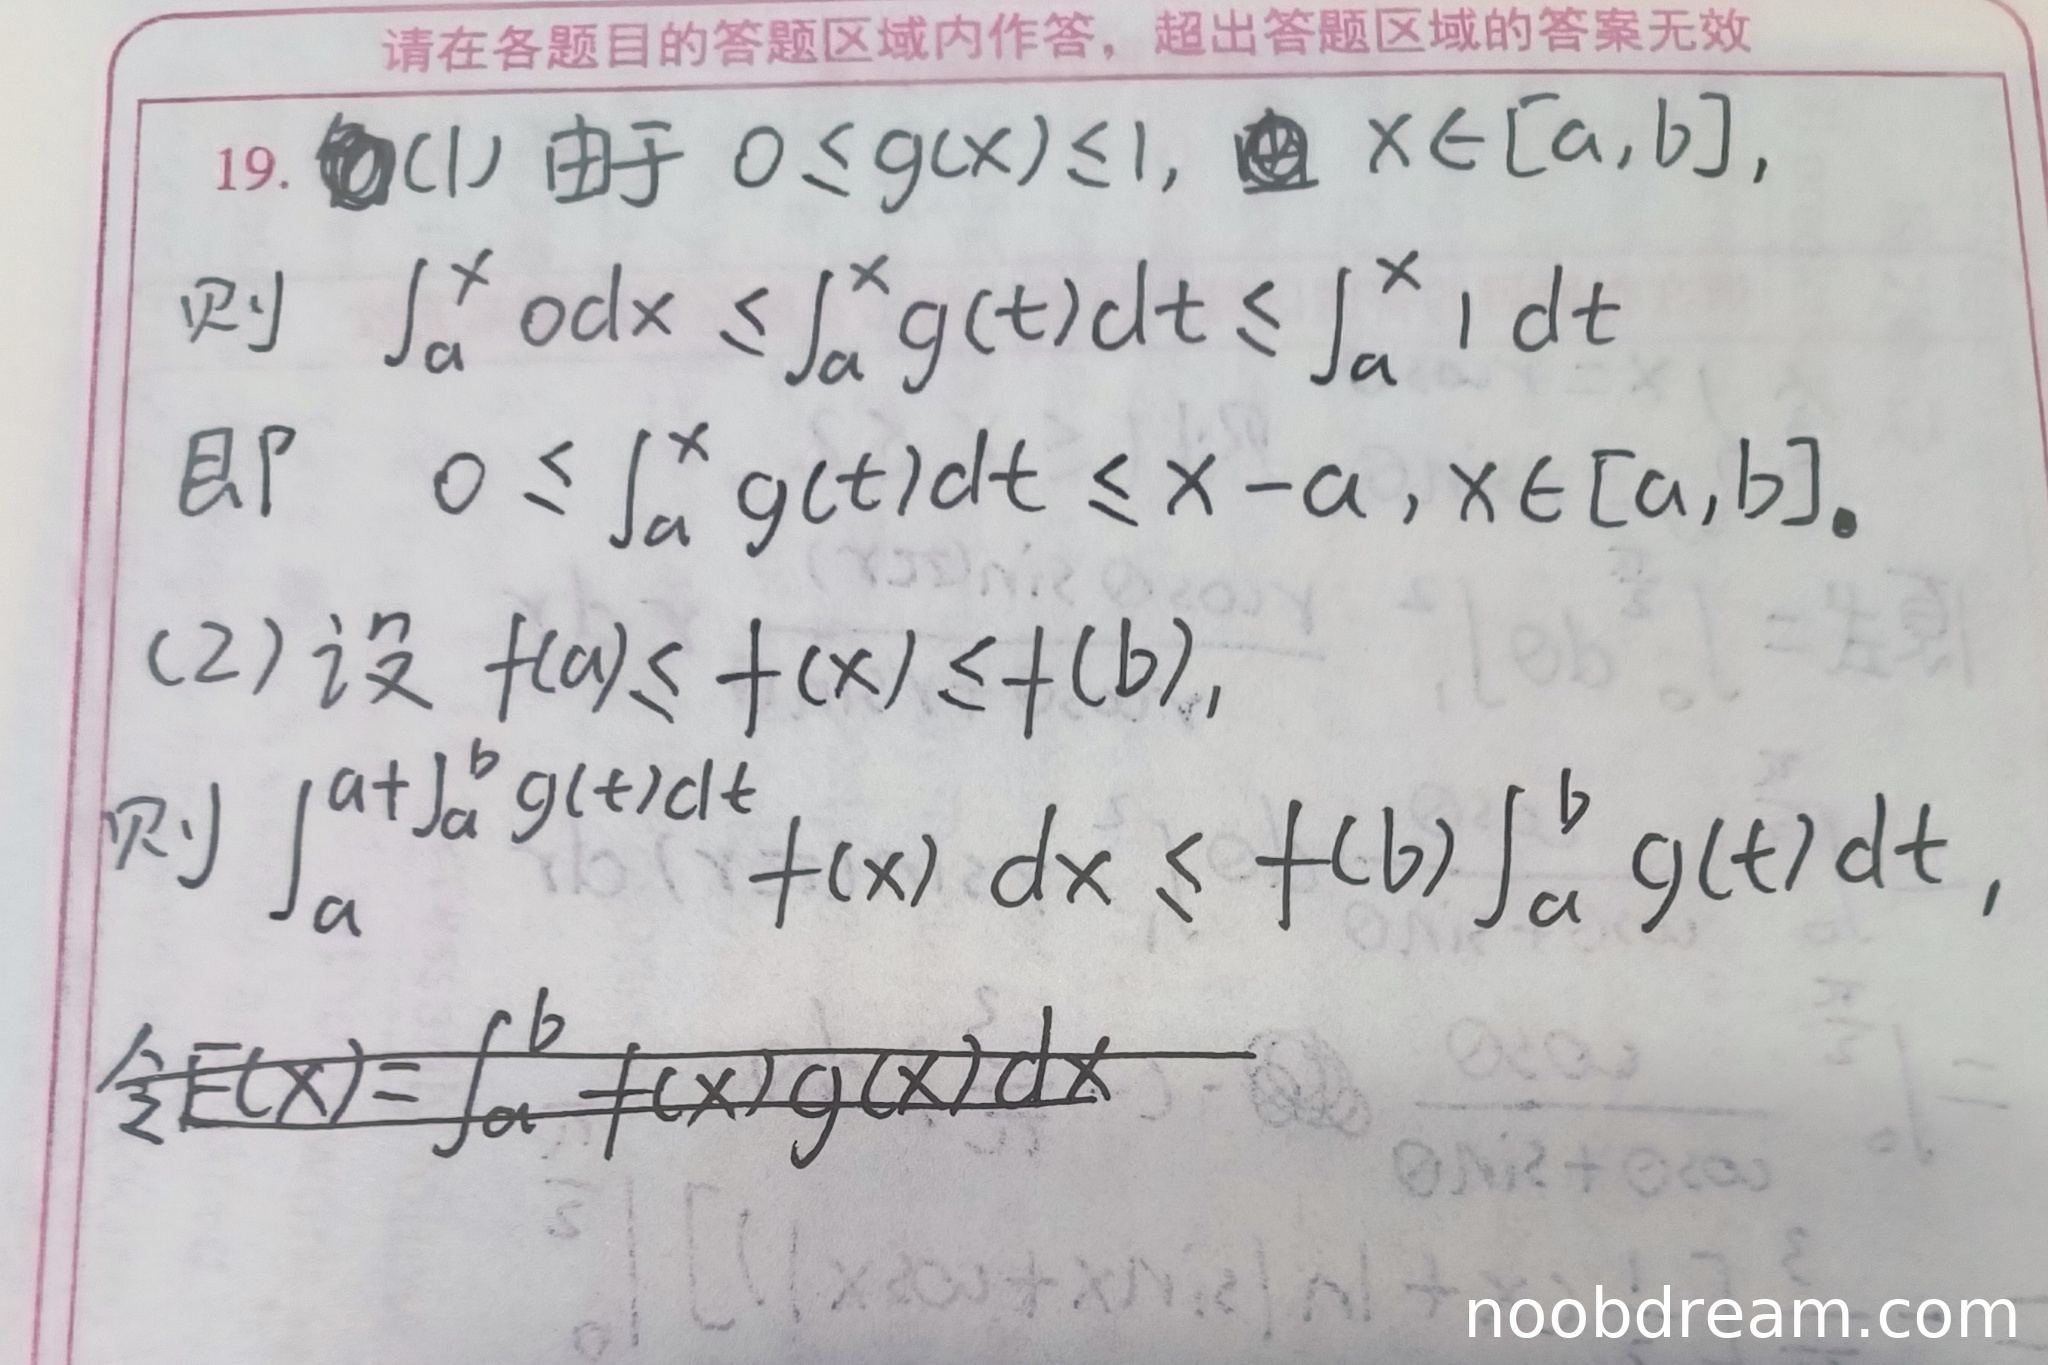 请在各题目的答题区域内作答，超出答题区域的答案无效
19. (1) 由于 0≤g(x)≤1, x∈[a,b],
则 ∫_a^x 0dx ≤ ∫_a^x g(t)dt ≤ ∫_a^x 1 dt
即 0 ≤ ∫_a^x g(t)dt ≤ x-a, x∈[a,b]。
(2) 设 f(a)≤ f(x) ≤ f(b),
则 ∫_a^{a+∫_a^b g(t)dt} f(x) dx ≤ f(b)∫_a^b g(t)dt,
令F(x)=∫_a^b f(x)g(x)dx
noobdream.com